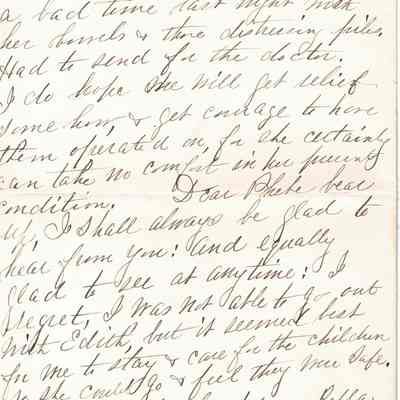 a bad time last night with
her bowels & those distressing piles.
Had to send for the doctor.
I do hope she will get relief
some how, & get courage to have
them operated on, for she certainly
can take no comfort in her present
condition. Dear Phebe bear
up, I shall always be glad to
hear from you: and equally
glad to see at anytime: I
regret, I was not able to go out
with Edith, but it seemed best
for me to stay & care for the children
so she could go & feel they were safe.
Bella